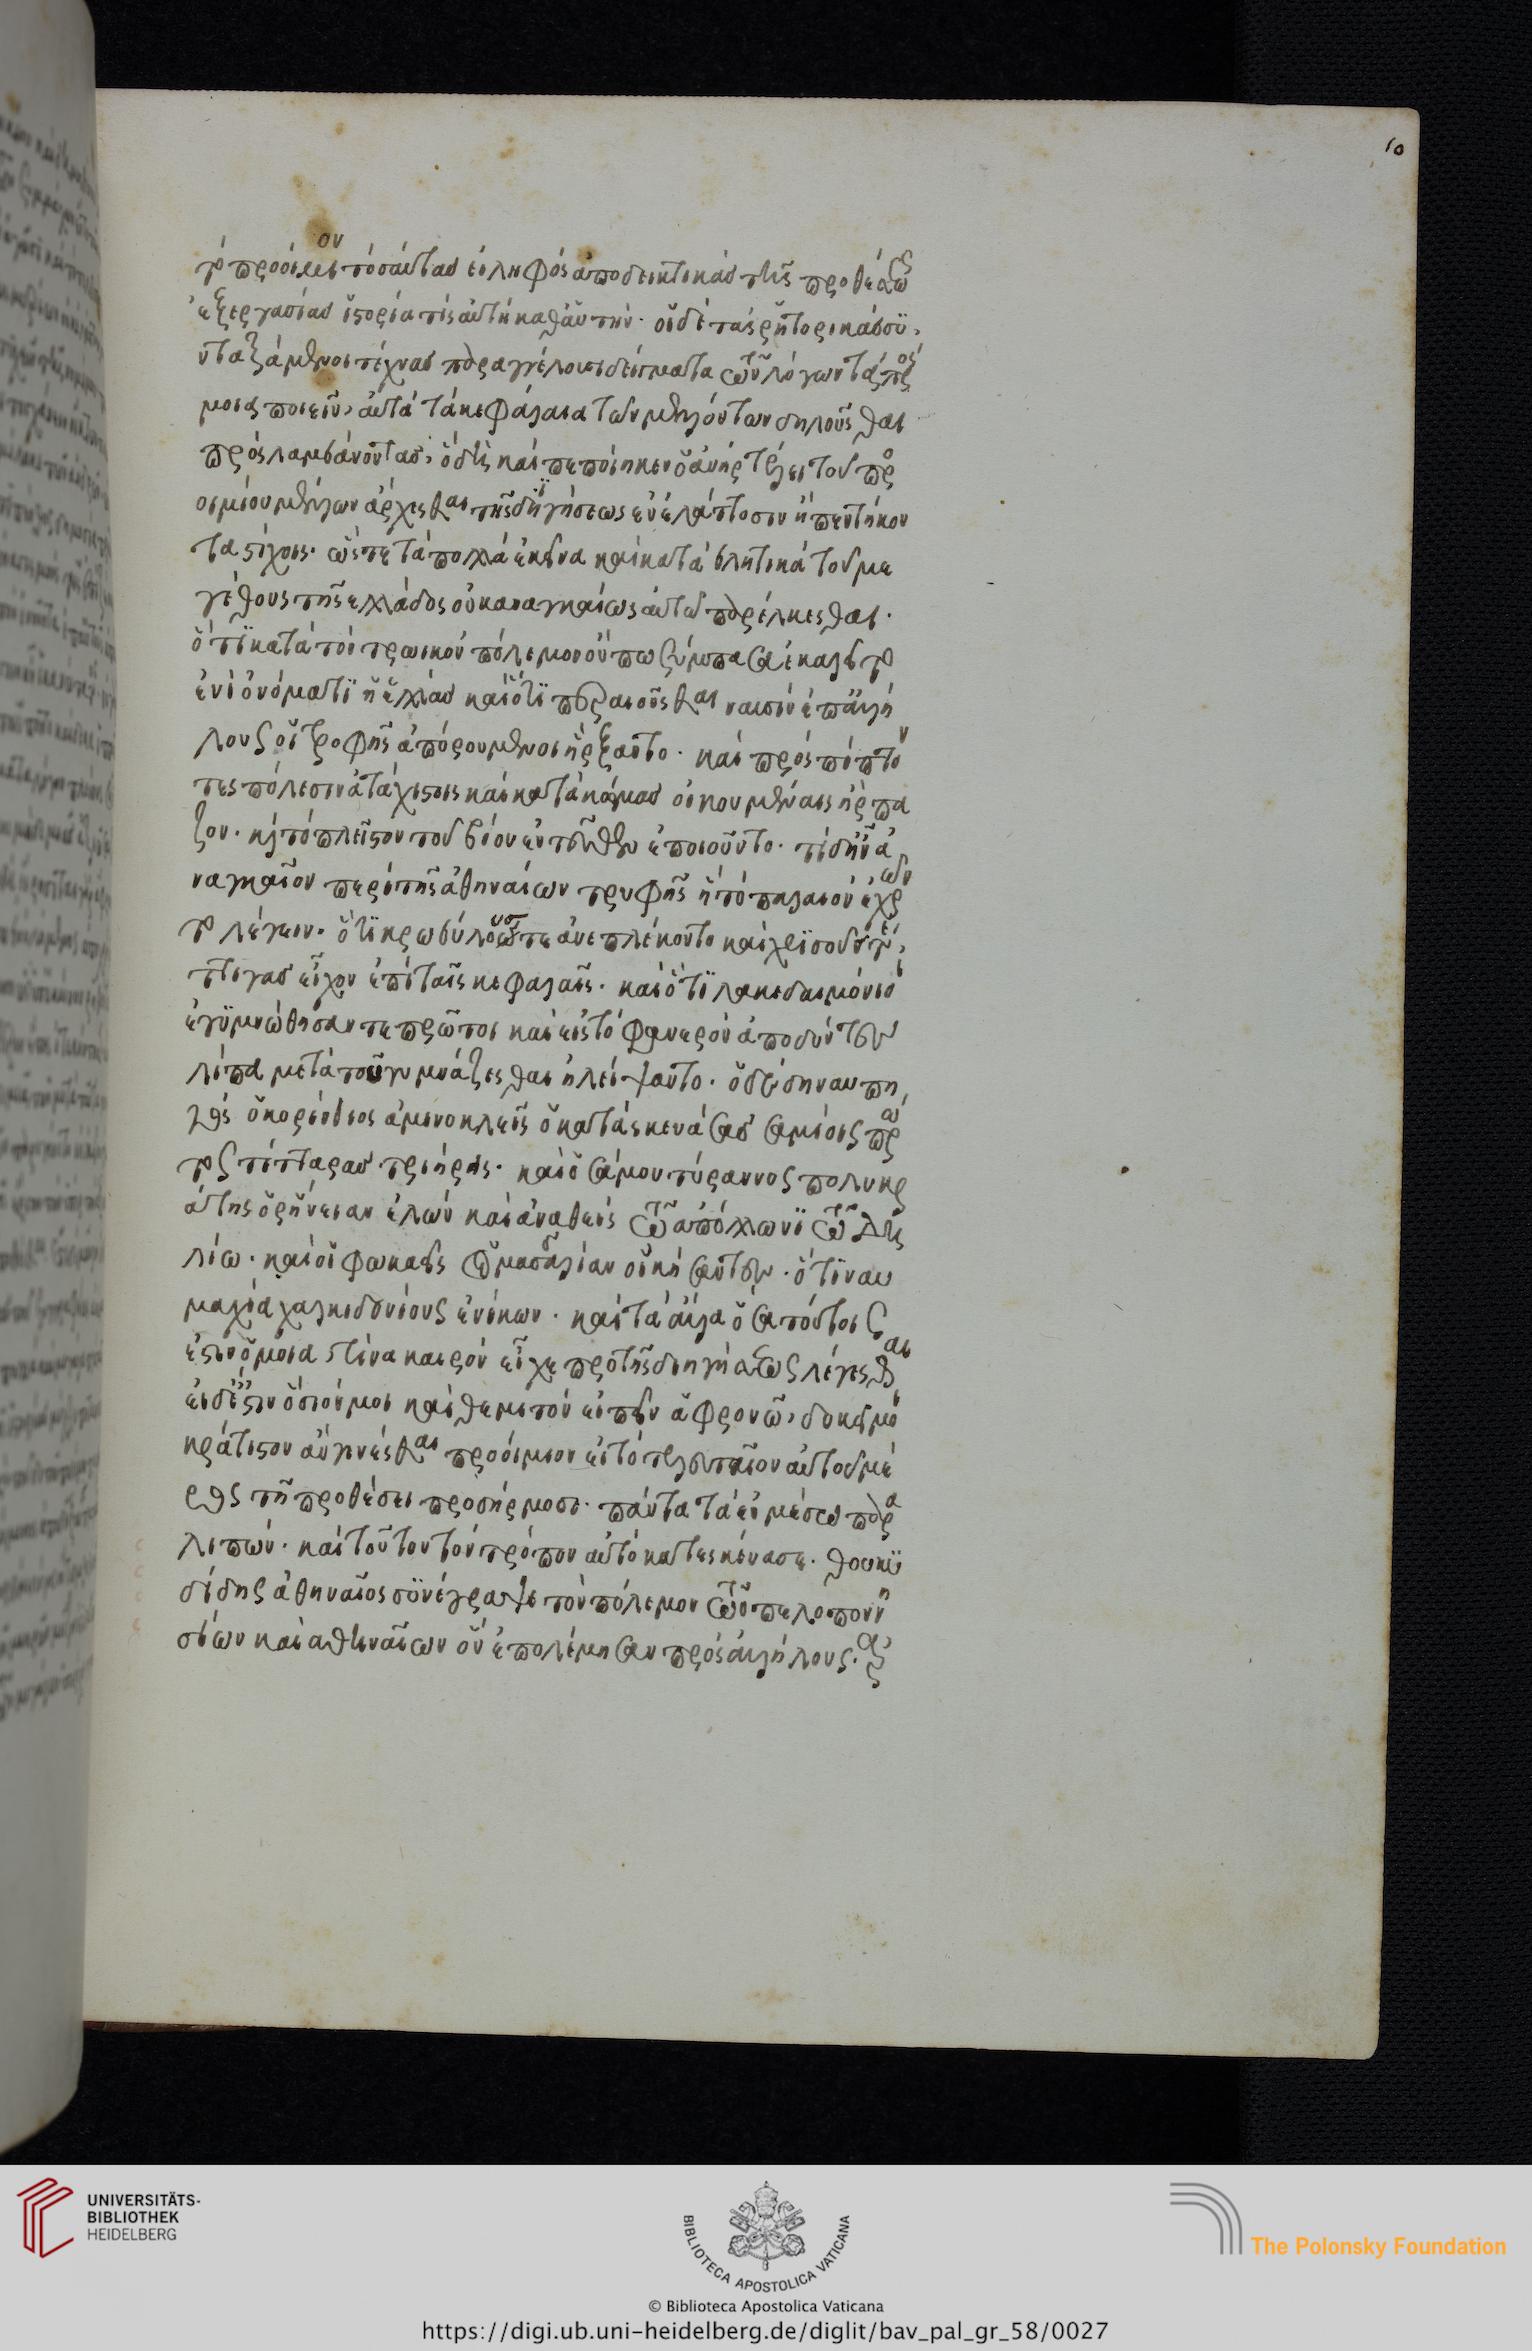 10
τὸ προοίμιον τοσαύτας εἰληφὸς ἀποδεικτικὰς τῆς προθέσεως
ἐξεργασίας ἱστορία τίς αὐτὴ καθ᾽ αὑτήν· οἱ δὲ τὰς ῥητορικὰς συ
νταξάμενοι τέχνας παραγγέλουσι δείγματα τῶν λόγων τὰ προοί
μοια ποιεῖν, αὐτὰ τὰ κεφάλαια τῶν μελλόντων δηλοῦσθαι
προσλαμβάνοντας, ὃ δὴ καὶ πεποίηκεν ὁ ἀνὴρ τέλει τοῦ προ
οιμίου μέλλων ἄρχεσθαι τῆς διηγήσεως ἐν ἐλάττοσιν ἢ πεντήκον
τα στίχοις· ὥστε τὰ πολλὰ ἐκεῖνα καὶ καταβλητικὰ τοῦ με
γέθους τῆς ἑλλάδος οὐκ αναγκαίως αὐτῶ παρέλκεσθαι·
ὅτι κατὰ τὸν τρωικὸν πόλεμον οὔπω ξύμπασα ἐκαλεῖτο
ἑνὶ ὀνόματι ἡ ἑλλὰς καὶ ὅτι περαιοῦσθαι ναυσὶν ἐπ᾽ ἀλλή
λους οἱ τροφῆς ἀπορούμενοι ἤρξαντο· καὶ προσπίπτον
τες πόλεσιν ἀτειχίστοις καὶ κατὰ κώμας οἰκουμέναις ἥρπα
ζον· καὶ τὸ πλεῖστον τοῦ βίου ἐντεῦθεν ἐποιοῦντο· τί δὴ ἦν ἀ
ναγκαῖον περὶ τῆς ἀθηναίων τρυφῆς ἧ τὸ παλαιὸν ἐχρῶν
το λέγειν· ὅτι κρωβύλους τε ἀνεπλέκοντο καὶ χρυσοῦς τέ
ττιγας εἶχον ἐπὶ ταῖς κεφαλαῖς· καὶ ὅτι λακεδαιμόνιοι
ἐγυμνώθησάν τε πρῶτοι καὶ εἰς τὸ φανερὸν ἀποδύντες
λίπα μετὰ τοῦ γυμνάζεσθαι ἠλείψαντο· ὁ δὲ δὴ ναυπη
γὸς ὁ κορίνθιος ἀμεινοκλεῖς ὁ κατασκευάσας σαμίοις πρῶ
τος τέτταρας τριήρεις· καὶ ὁ σάμου τύραννος πολυκρ
άτης ὁ ῥήνειαν ἑλὼν καὶ ἀναθεὶς τῶ ἀπόλλωνι τῶ δη
λίω· καὶ οἱ φωκαεῖς οἱ μασσαλίαν οἰκήσαντες· ὅτι ναυ
μαχία χαλκηδονίους ἐνίκων· καὶ τὰ ἄλλα ὁσα τούτοις
ἐστιν ὅμοια τίνα καιρὸν εἶχε πρὸ τῆς διηγήσεως λέγεσθαι
εἰ δέ ἐστιν ὅσιόν μοι καὶ θεμιτὸν εἰπεῖν ἃ φρονῶ, δοκεῖ μοι
κράτιστον ἂν γενέσθαι προοίμιον εἰ τὸ τελευταῖον αὐτοῦ μέ
ρος τῆ προθέσει προσήρμοσε· πάντα τὰ ἐν μέσω παρα
λιπών· καὶ τοῦτον τὸν τρόπον αὐτὸ κατεσκεύασε· θουκυ
δίδης ἀθηναῖος συνέγραψε τὸν πόλεμον τῶν πελοποννη
σίων καὶ αθηναίων ὃν ἐπολέμησαν πρὸς ἀλλήλους· ἀρξ
UNIVERSITÄTS-
BIBLIOTHEK
HEIDELBERG
BIBLIOTECA APOSTOLICA VATICANA
The Polonsky Foundation
© Biblioteca Apostolica Vaticana
https://digi.ub.uni-heidelberg.de/diglit/bav_pal_gr_58/0027